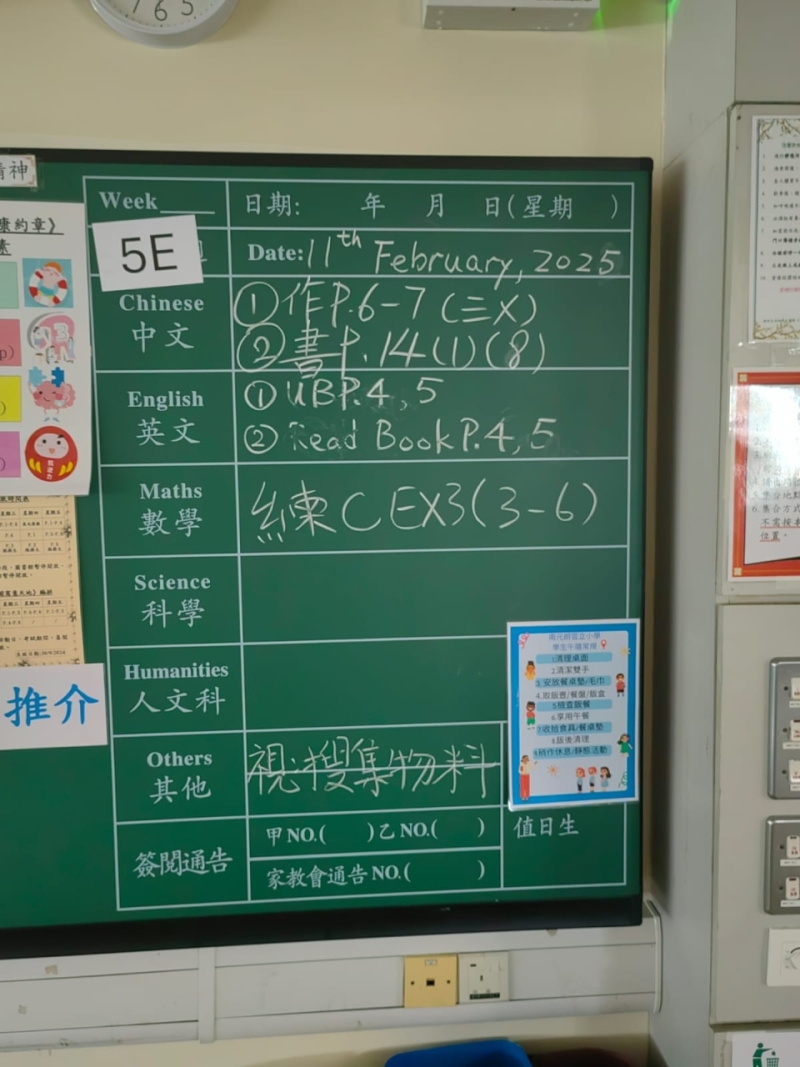 7 6 5
精神
康約章》
素
Week____ 日期: 年 月 日(星期 )
5E
Date: 11th February, 2025
Chinese
中文
① 作P.6-7 (三X)
② 書P.14(1)(8)
English
英文
① UBP.4,5
② Read Book P.4,5
Maths
數學
練C EX3(3-6)
Science
科學
Humanities
人文科
Others
其他
視:搜集物料
簽閱通告
甲NO.( )乙NO.( )
家教會通告NO.( )
值日生
學生午膳常規
1.清理桌面
2.清潔雙手
3.安放餐桌墊/毛巾
4.取飯壺/餐盤/飯盒
5.檢查飯餐
6.享用午餐
7.收拾食具/餐桌墊
8.飯後清理
9.稍作休息/靜態活動
推介
6.集合方式
不需按
位置。